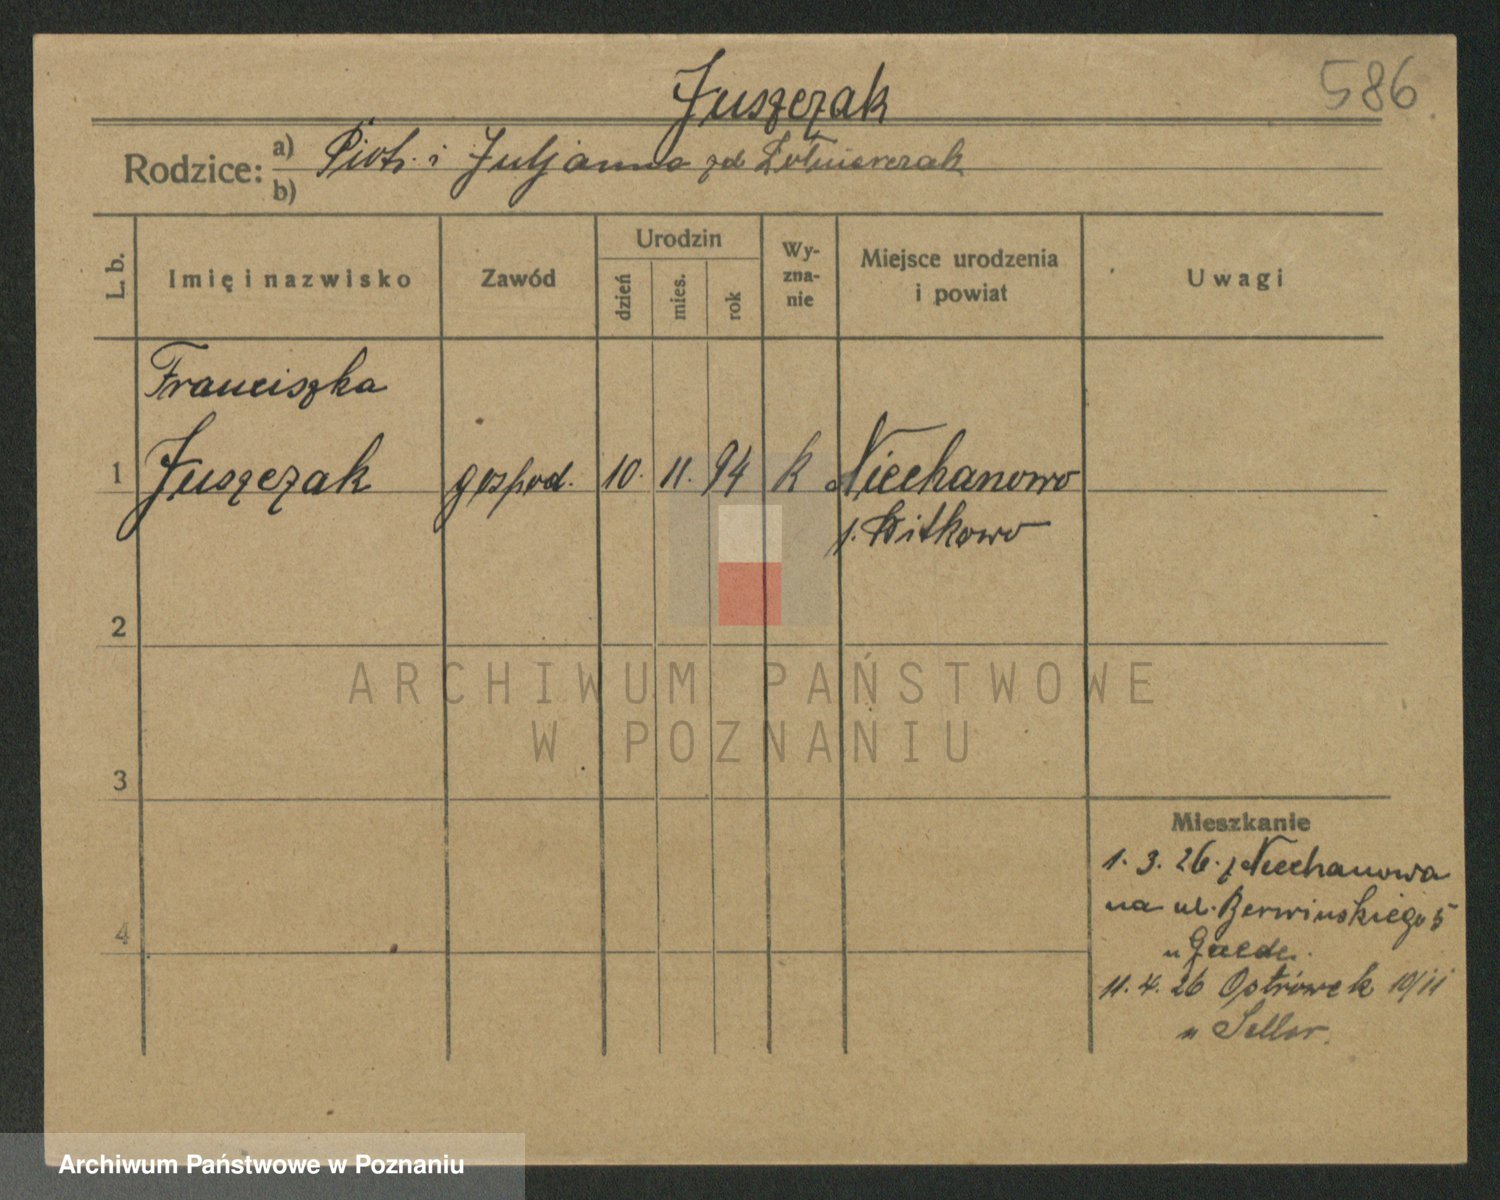 586
Juszczak
Rodzice: a) Piotr i Juljanna zd Żołnierczak
b)
L. b.
Imię i nazwisko
Zawód
Urodzin
dzień
mies.
rok
Wy-
zna-
nie
Miejsce urodzenia
i powiat
Uwagi
Franciszka
1 Juszczak gospod. 10. 11. 94 k Niechanowo
Witkowo
2
3
4
Mieszkanie
1. 3. 26. z Niechanowa
na ul. Berwińskiego 5
u Gaede.
11. 4. 26 Ostrówek 10/11
u Seller.
ARCHIWUM PAŃSTWOWE
W POZNANIU
Archiwum Państwowe w Poznaniu